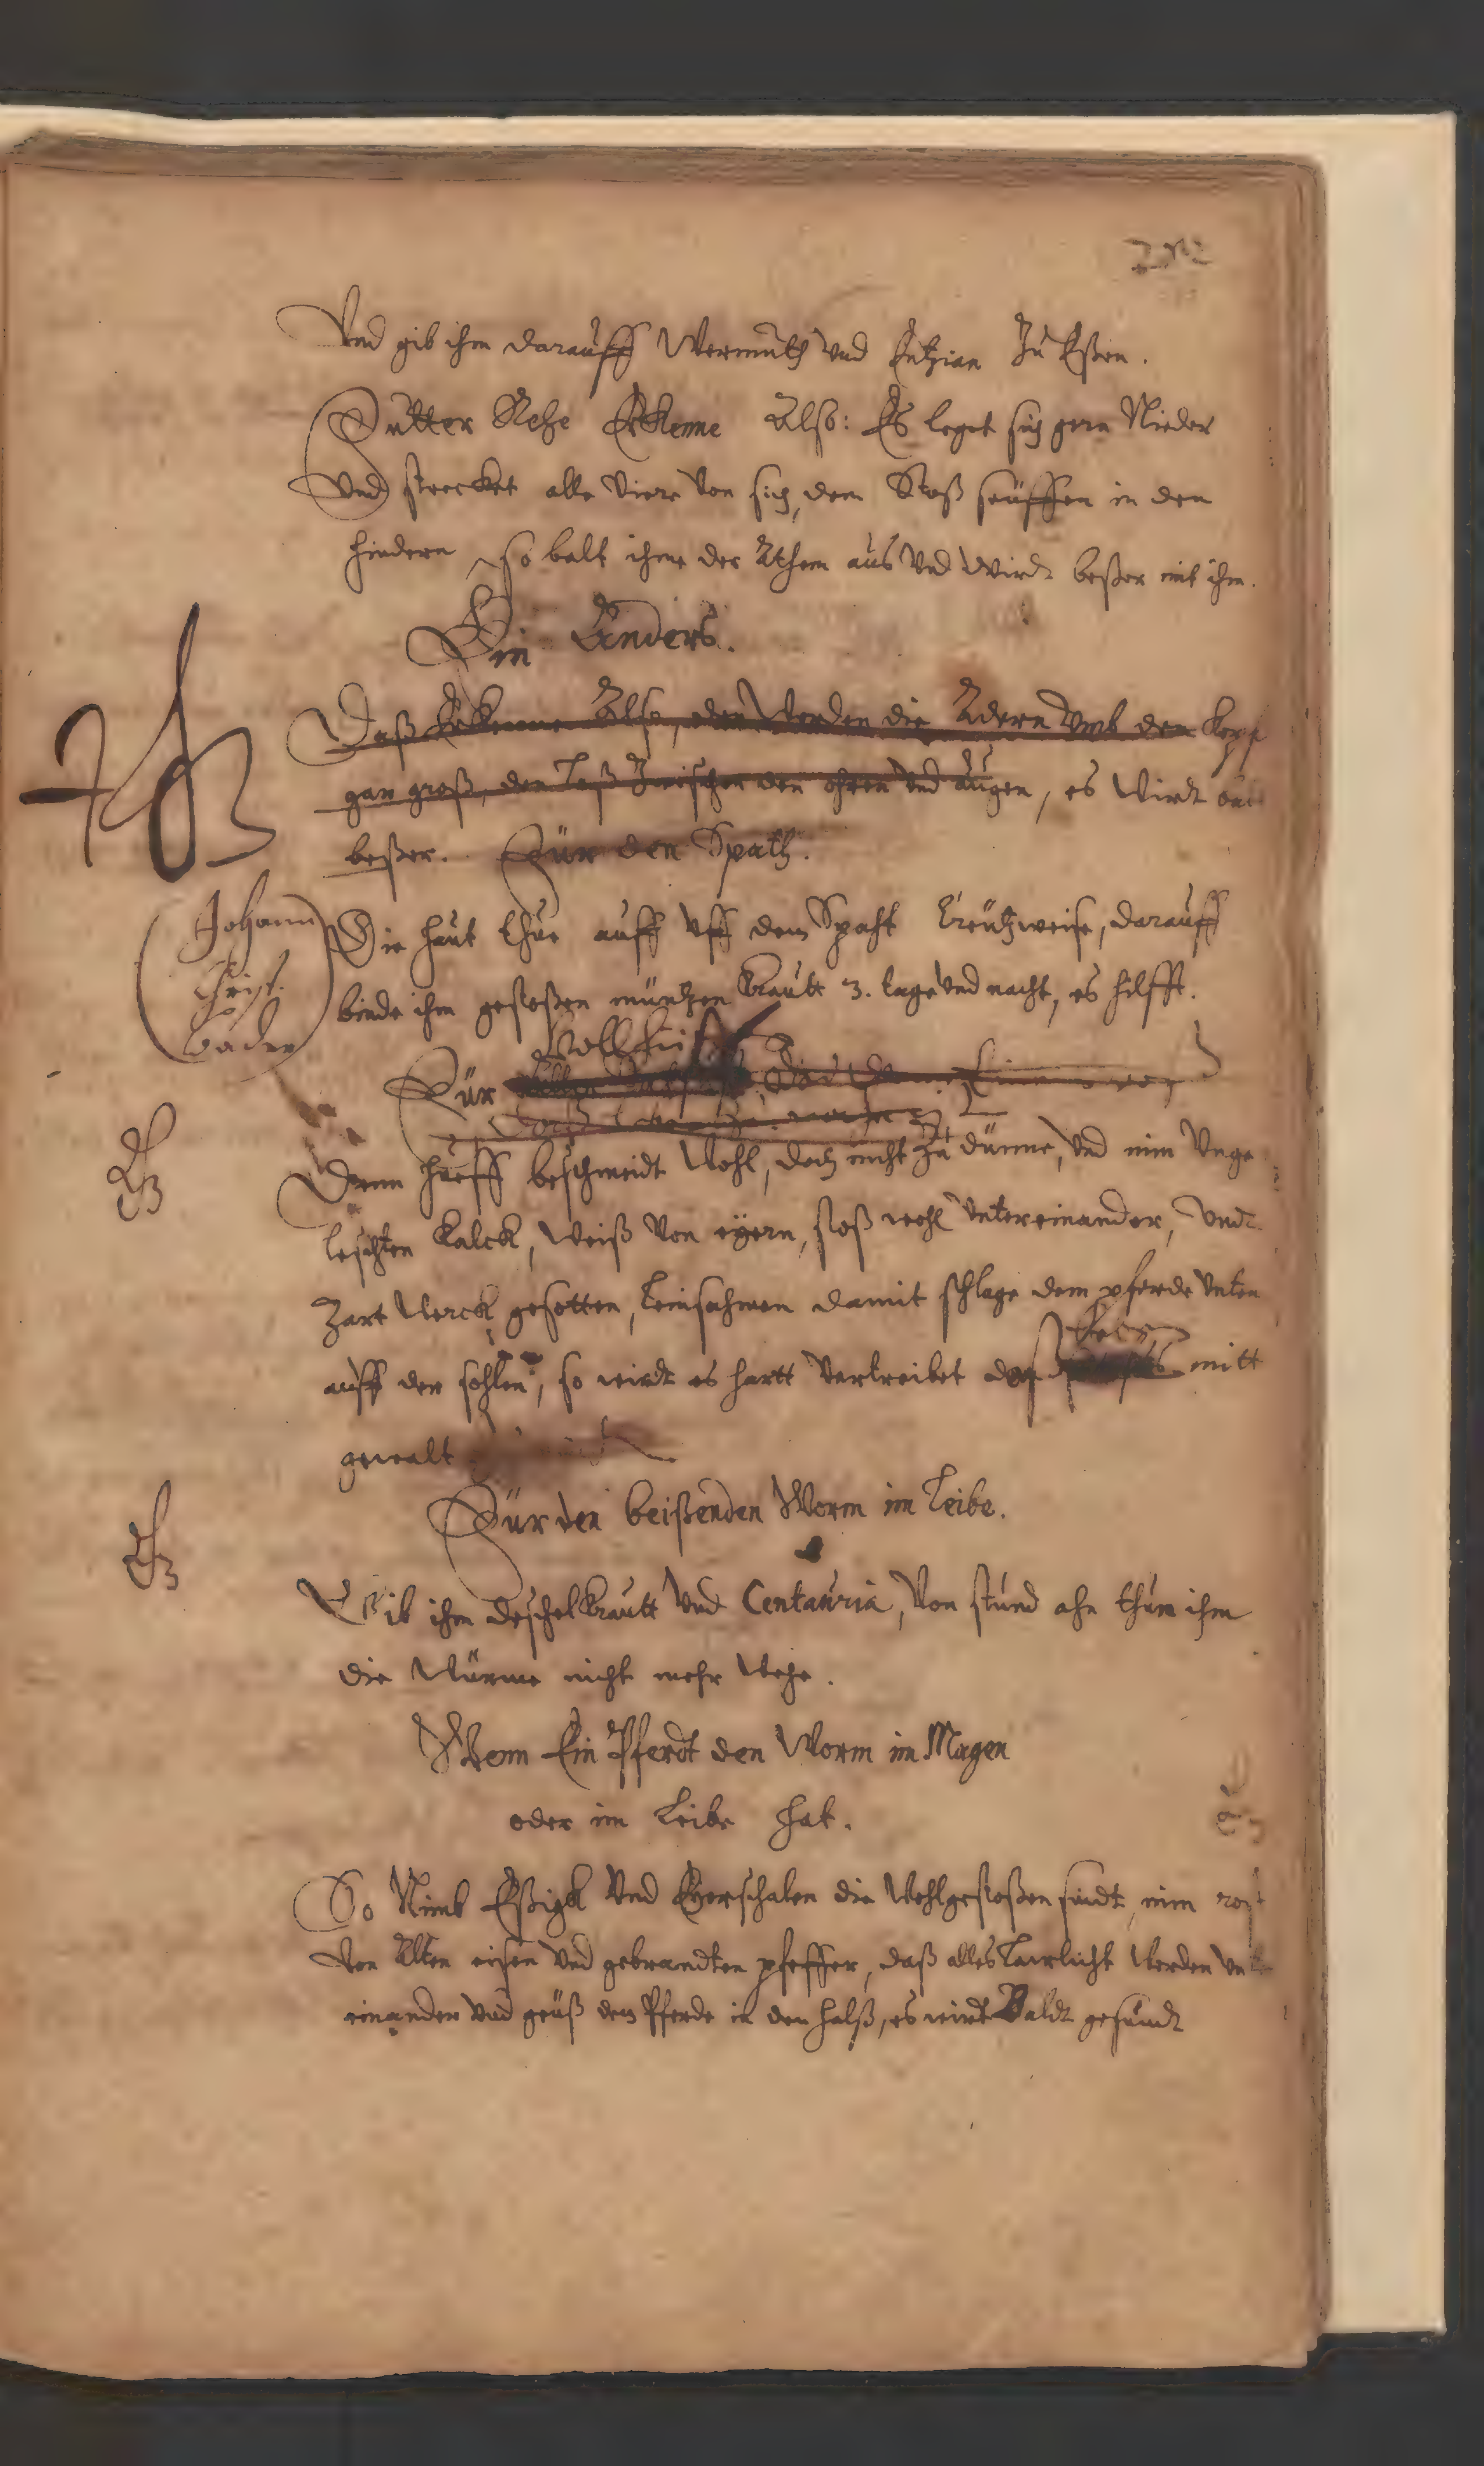 Vnd gib ihm darauff Wermuth vnd Entzian Zu Eßen.
Futter Rehe Erkenne Alß: Es leget sich gern Nieder
vnd strecket alle vier von sich, dem Stoß seuffen in den
hindern, so balt ihme der Athem aus vnd wirdt beßer mit ihm.
Ein Anders.
Daß Erkenne Alß, den werden die Adern vmb den kopf
gar groß, den laß Zwischen den ohren vnd augen, es wirdt
beßer. Für den Spath.
Johann
Christ.
Bader
Die haut thue auff vff dem Spaht Creutzweise, darauff
binde ihm gestoßen müntzen Krautt 3. tage vnd nacht, es hilfft.
Für
Denn hueff beschneidt wohl, doch nicht Zu dünne, vnd nim vnge
leschten Kalck, weiß von eyern, stoß wohl vntereinander, vndt
Zart werck gesotten, leinsahmen damit schlage dem pferde vnten
auff der sohlen, so wirdt es hartt vertreibet mitt
gewalt
Für den beißenden Worm im Leibe.
Gib ihm deschelkrautt vnd Centauria, von stund ahn thun ihm
die würme nicht mehr wehe.
Wenn Ein Pferdt den Worm im Magen
oder im Leibe hat.
So Nimb Eßigk vnd Eyerschalen die wohlgestoßen sindt, nim rost
von Alten eisen vnd gebrandten pfeffer, daß alles werden
einander vnd geuß dem Pferde in den halß, es wirdt Baldt gesundt